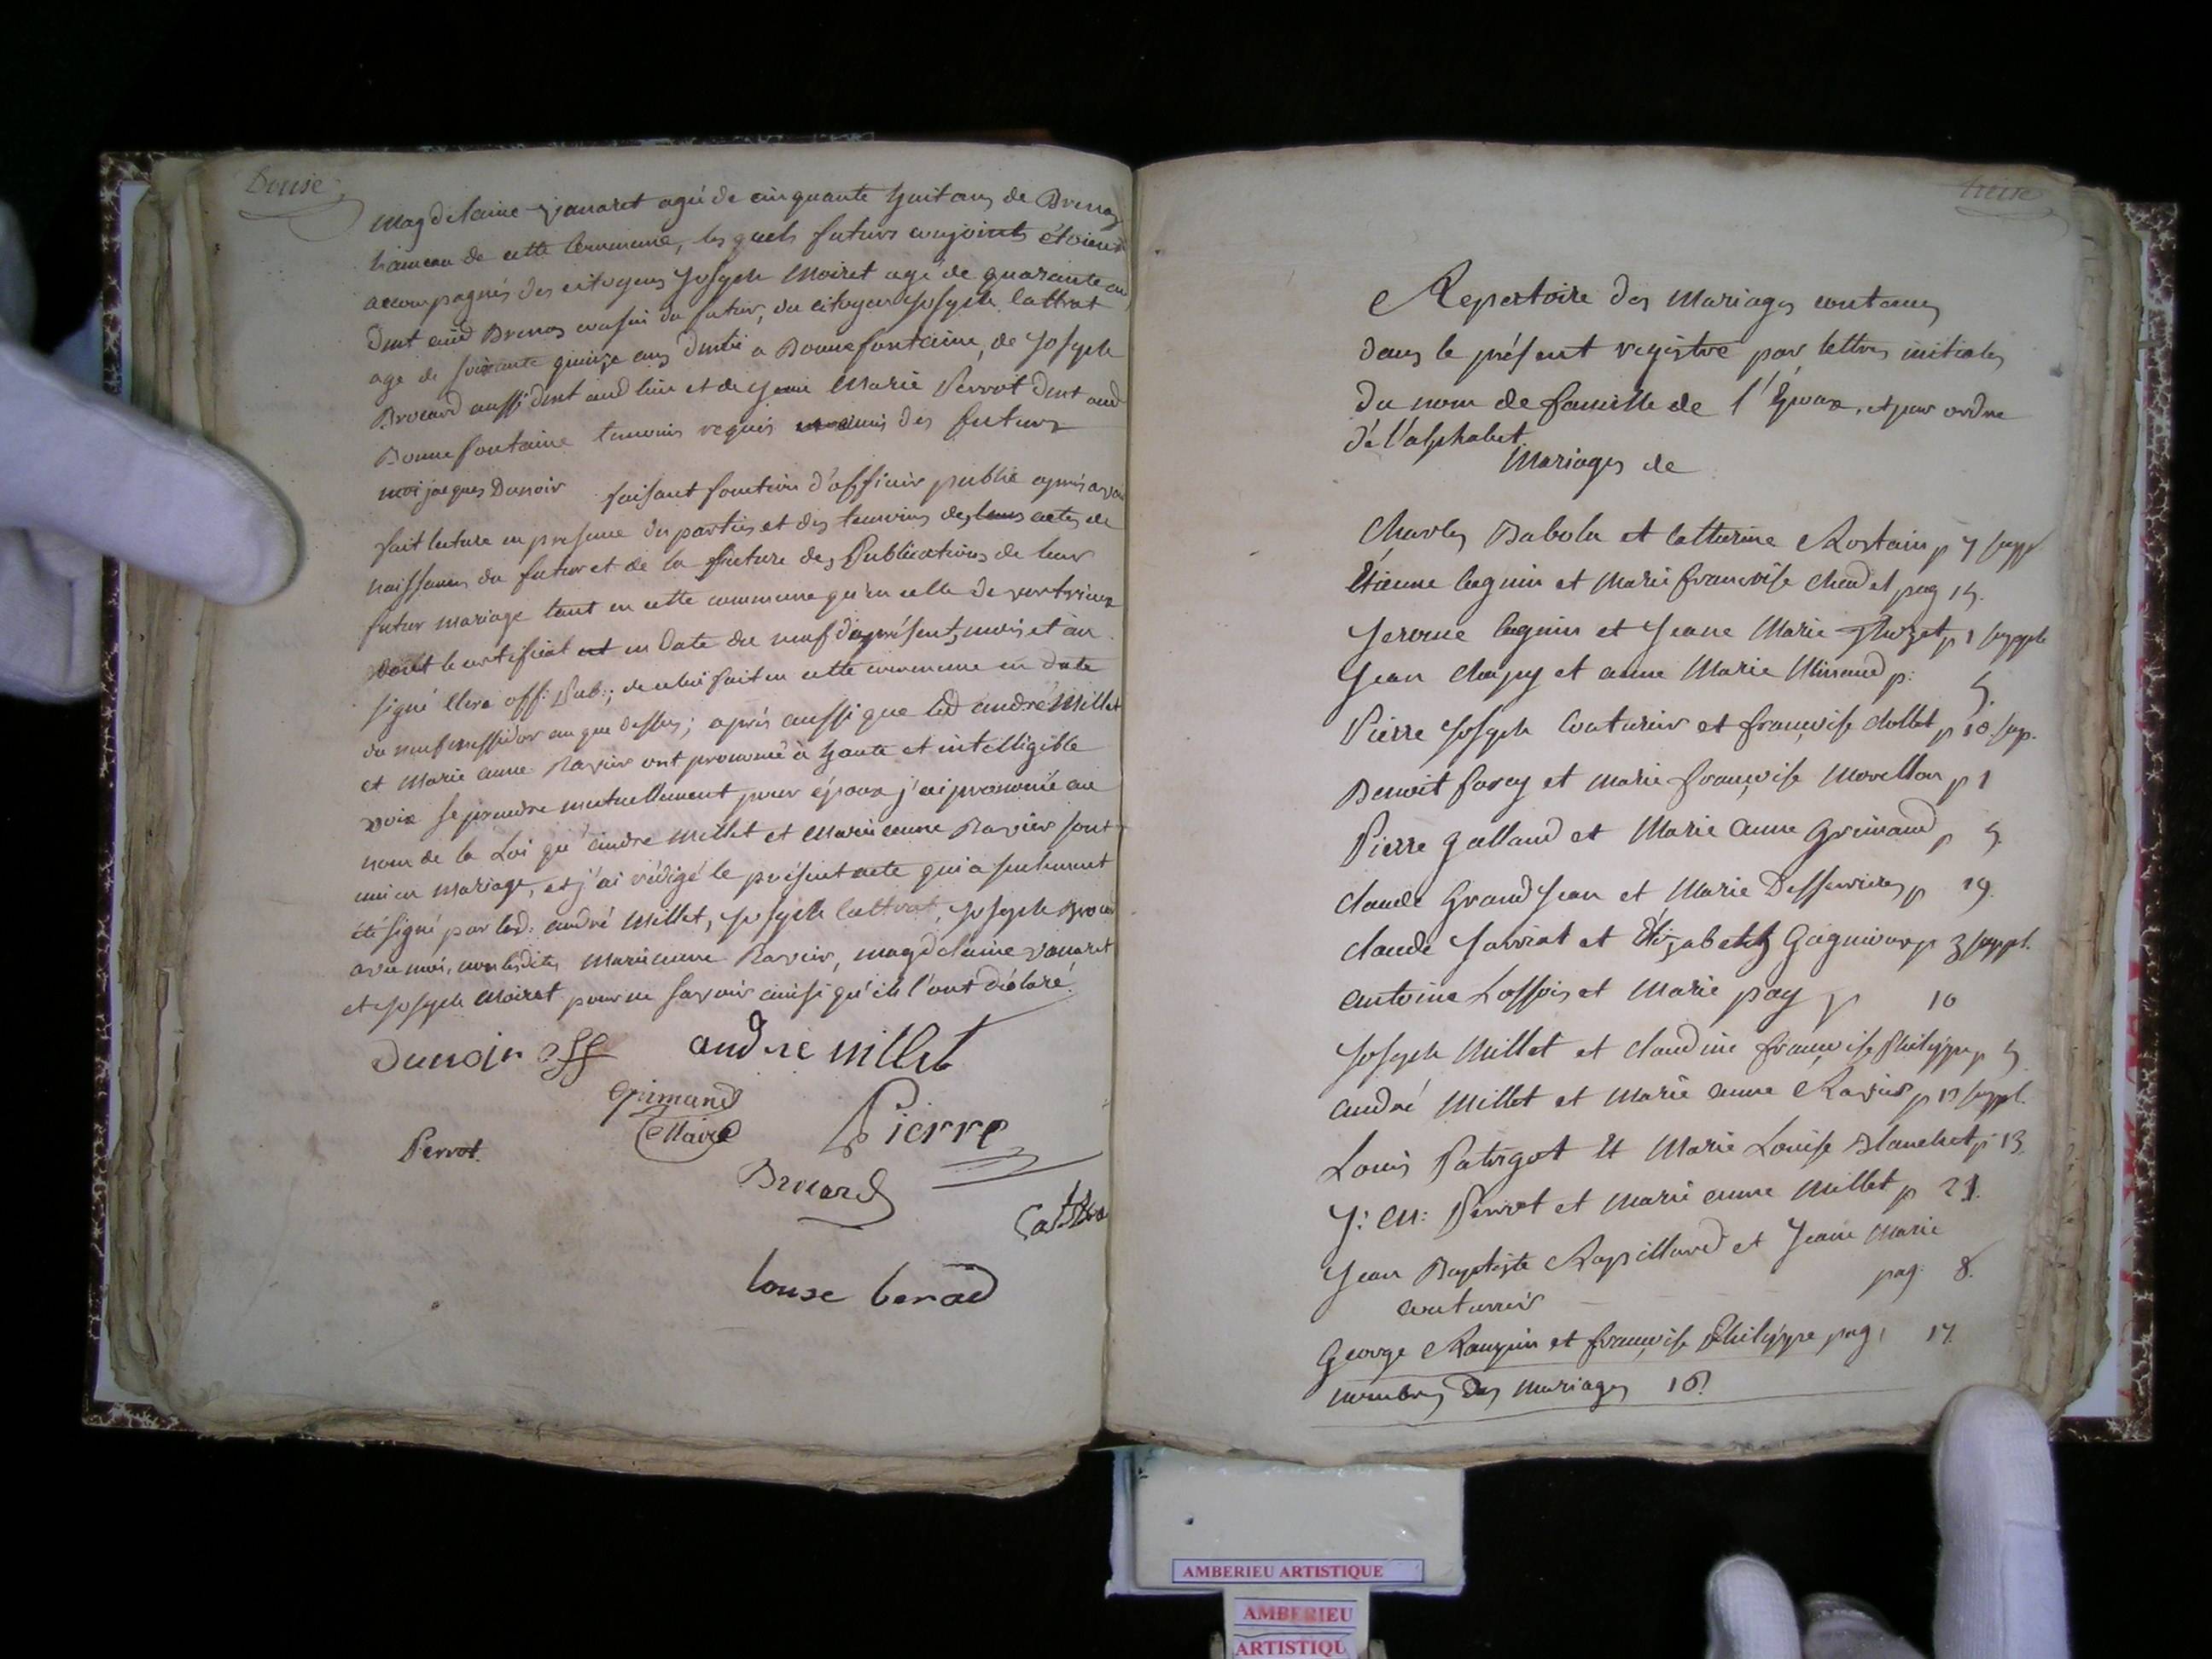 Douse
magdelaine vanaret agée de cinquante huit ans de Brenas
hameau de cette Commune, les quels futurs conjoints étoient
accompagnés des citoyens Joseph Moiret agé de quarante ans
dmt aud Brenas cousin du futur, du citoyen Joseph Cattrat
agé de soixante quinze ans dmté a Bonnefontaine, de Joseph
Brocard aussi dmt aud lieu et de Jean Marie Perrot dmt aud
Bonnefontaine temoins requis amis des futurs
moi jacques Dunoir faisant fonction d'officier public après avoir
fait lecture en presence des parties et des temoins des leurs actes de
naissances du futur et de la future des Publications de leur
futur mariage tant en cette commune qu'en celle de
dont le certificat est en date du neuf du présent, mois et an
signé off: Pub:, de celui fait en cette commune en date
du neuf messidor an que dessus; après aussi que led andré Millet
et Marie anne Ravier ont prononcé à haute et intelligible
voix se prendre mutuellement pour époux j'ai prononcé au
nom de la Loi qu'andré Millet et Marie anne Ravier sont
unis en mariage, et j'ai rédigé le présent acte qui a seulement
été signé par led: andré Millet, Joseph Cattrat, Joseph Brocard
avec moi, non lesdites Marie anne Ravier, magdelaine vanaret
et Joseph Moiret pour ne savoir ainsi qu'ils l'ont déclaré.
Dunoir off andré millet
Grimand
Maire Pierre
Perrot
Brocard
Cattra
louse berad
treise
Repertoire des Mariages contenus
dans le présent registre par lettres initiales
du nom de famille de l'Époux, et par ordre
de l'alphabet
Mariages de
Charles Babolu et Catterine Rostain p 7 supp
Étienne Caguin et Marie francoise Chadel pag 15.
Jerome Caguin et Jeane Marie Thuzet p 1 suppl
Jean Chapuy et anne Marie Minaud p: 5.
Pierre Joseph Couturier et françoise Collet p 10 sup.
Benoit farey et Marie françoise Morellon p 1
Pierre Galland et Marie Anne Grimand p 5.
Claude Grand Jean et Marie Desserviers p 19.
Claude Jarriat et Elizabeth Gagnieur p 3 suppl.
Antoine Lossois et Marie pay p 10
Joseph Millet et Claudine françoise Philippe p 5
andré Millet et Marie anne Ravier p 12 suppl.
Louis Paturgot et Marie Louise Blanchet p 13.
J: M: Perrot et Marie anne Millet p 21.
Jean Baptiste Rapillard et Jeane Marie
couturier pag. 8.
George Raupin et françoise Philippe pag. 17.
nombres des mariages 16.
AMBERIEU ARTISTIQUE
AMBERIEU
ARTISTIQU